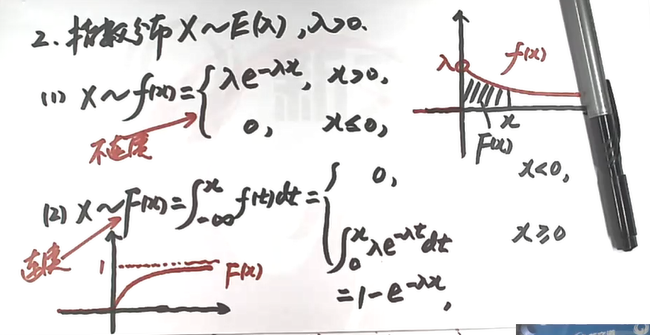 2. 指数分布 X~E(λ), λ>0.
(1) X~f(x)={ λe^{-λx}, x>0,
0, x≤0,
不连续
λ
f(x)
x
F(x)
(2) X~F(x)=∫_{-∞}^{x} f(t)dt={ 0, x<0,
∫_0^x λe^{-λt}dt
=1-e^{-λx}, x≥0
连续
1
F(x)